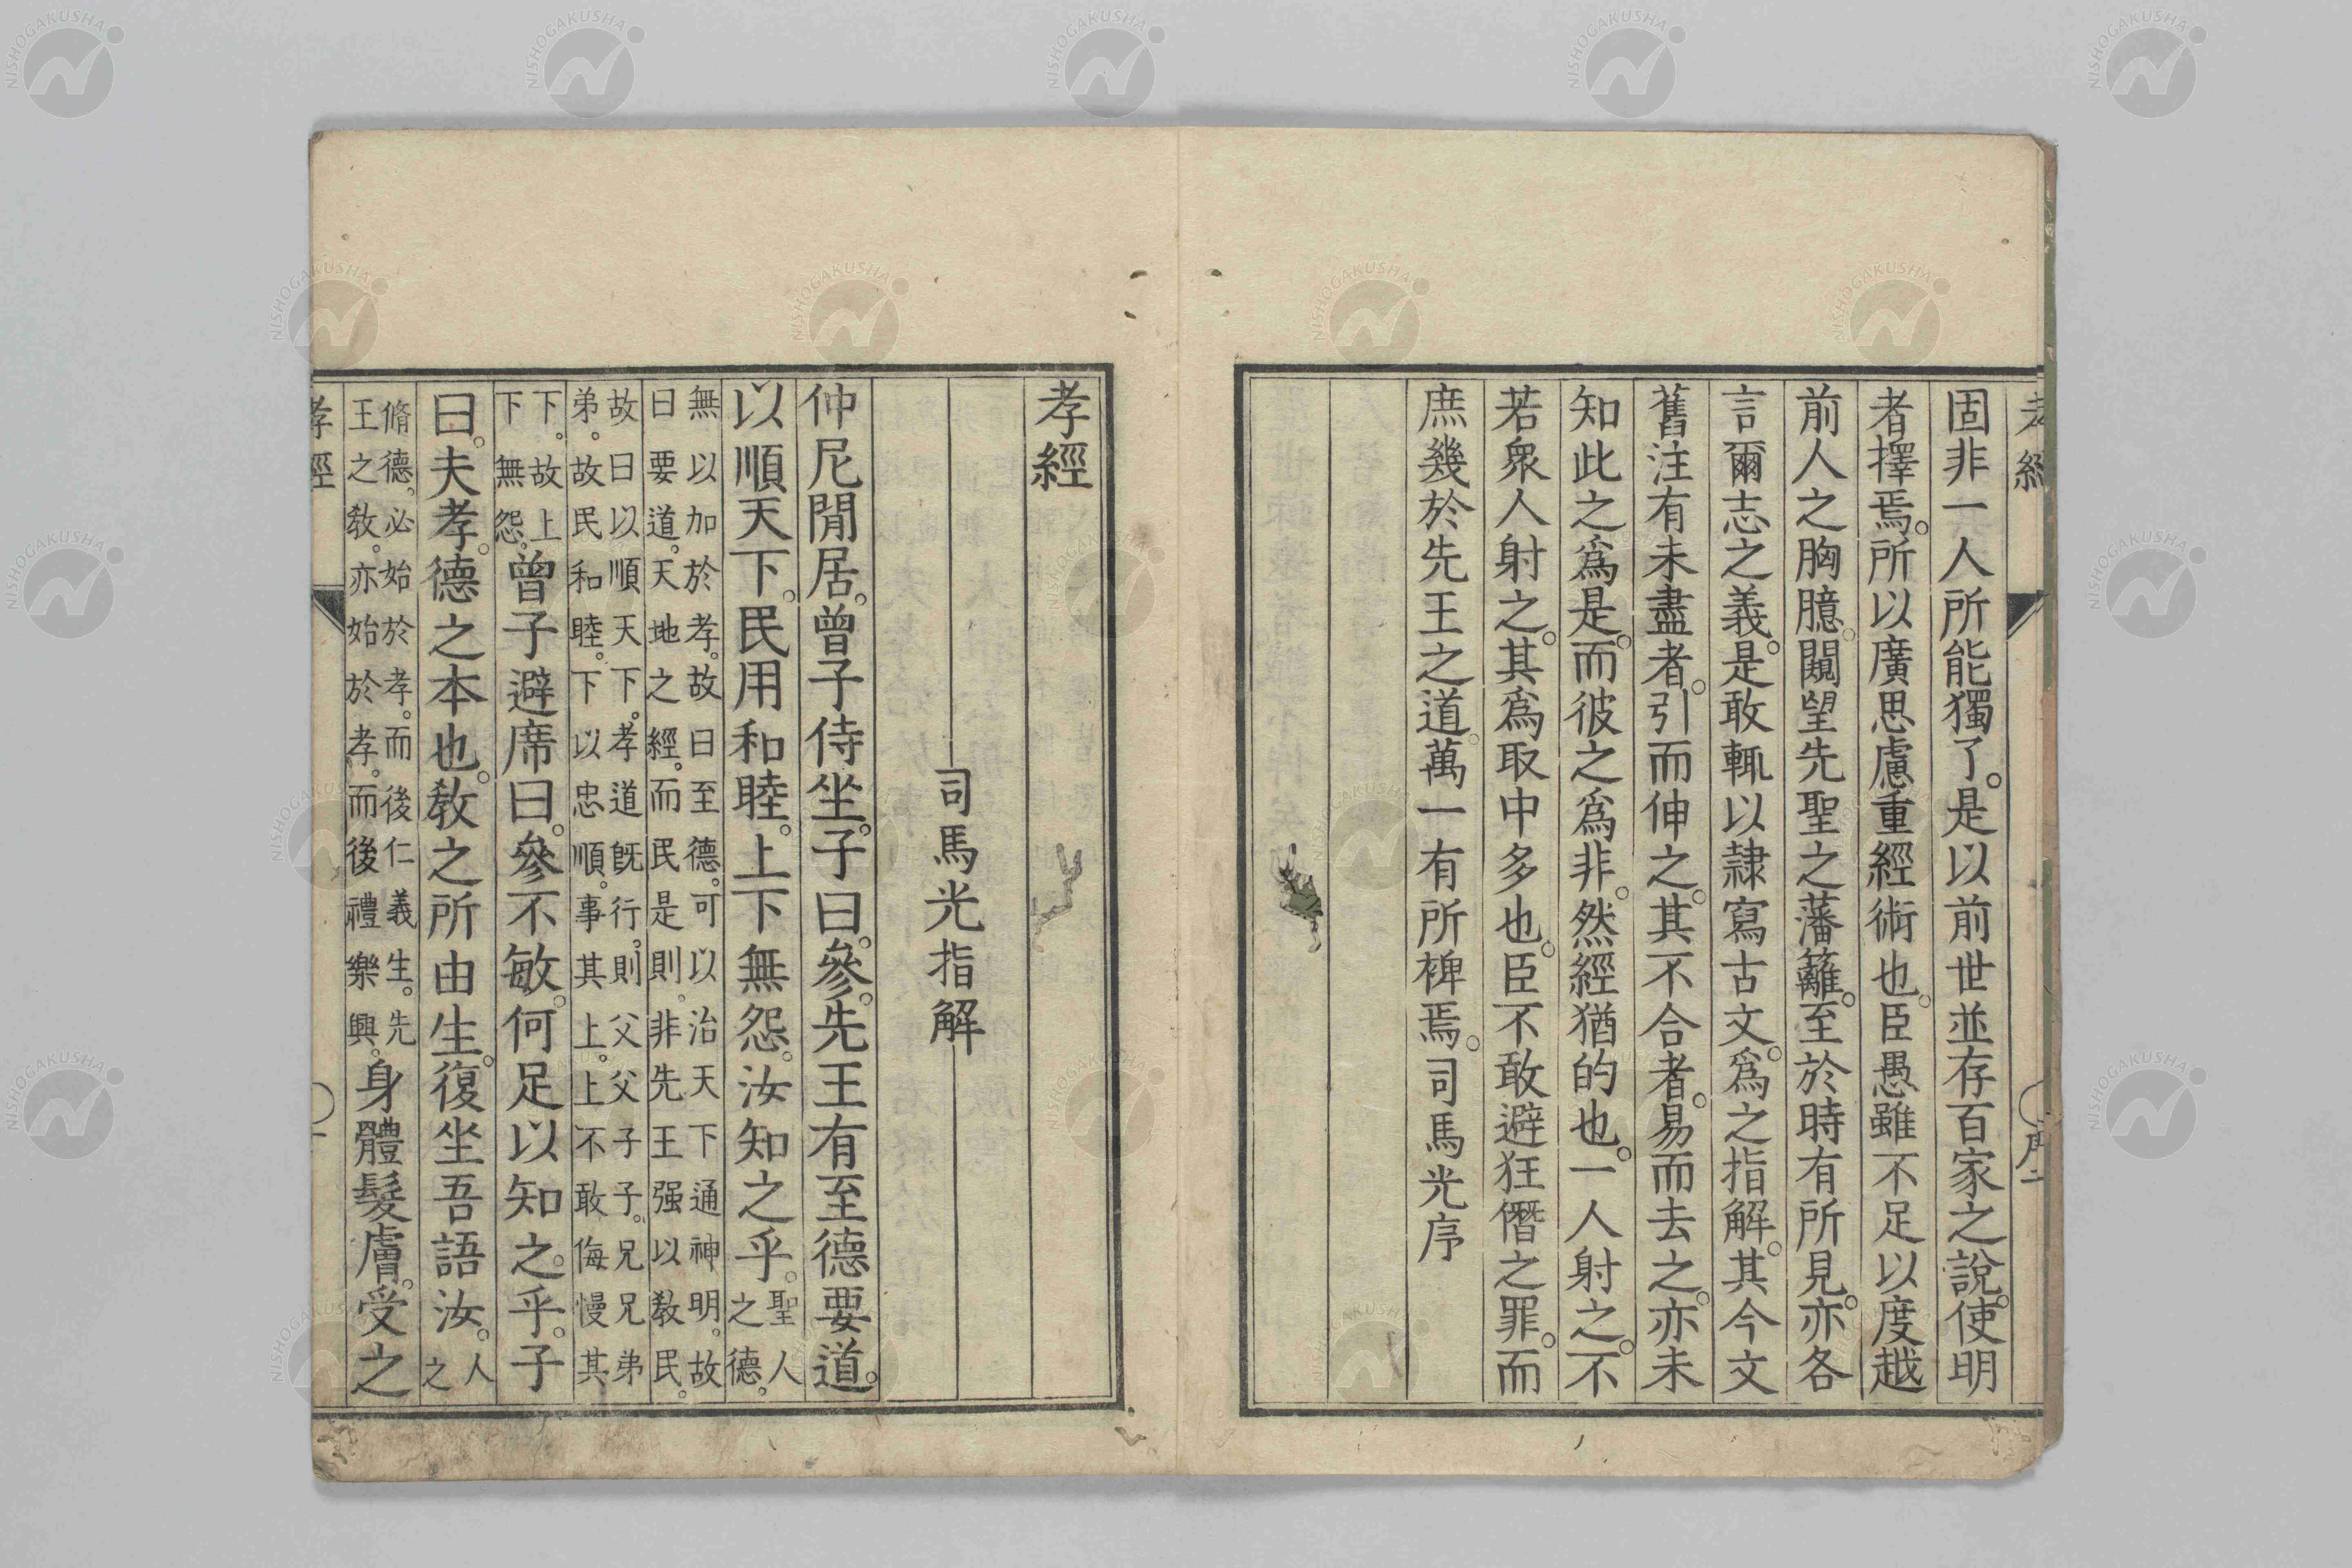 孝經
序二
固非一人所能獨了。是以前世並存百家之說。使明
者擇焉。所以廣思慮重經術也。臣愚雖不足以度越
前人之胸臆。闚望先聖之藩籬。至於時有所見。亦各
言爾志之義。是敢輒以隷寫古文。爲之指解。其今文
舊注有未盡者。引而伸之。其不合者。易而去之。亦未
知此之爲是。而彼之爲非。然經猶的也。一人射之。不
若衆人射之。其爲取中多也。臣不敢避狂僭之罪。而
庶幾於先王之道。萬一有所裨焉。司馬光序
孝經
司馬光指解
仲尼閒居。曾子侍坐。子曰。參。先王有至德要道。
以順天下。民用和睦。上下無怨。汝知之乎。聖人
之德。
無以加於孝。故曰至德。可以治天下通神明。故
曰要道。天地之經。而民是則。非先王强以敎民。
故曰以順天下。孝道旣行。則父父子子。兄兄弟
弟。故民和睦。下以忠順。事其上。上不敢侮慢其
下。故上
下無怨。曾子避席曰。參不敏。何足以知之乎。子
曰。夫孝。德之本也。敎之所由生。復坐吾語汝。人
之
脩德。必始於孝。而後仁義生。先
王之敎。亦始於孝。而後禮樂興。身體髮膚。受之
孝經
一
NISHOGAKUSHA
NISHOGAKUSHA
NISHOGAKUSHA
NISHOGAKUSHA
NISHOGAKUSHA
NISHOGAKUSHA
NISHOGAKUSHA
NISHOGAKUSHA
NISHOGAKUSHA
NISHOGAKUSHA
NISHOGAKUSHA
NISHOGAKUSHA
NISHOGAKUSHA